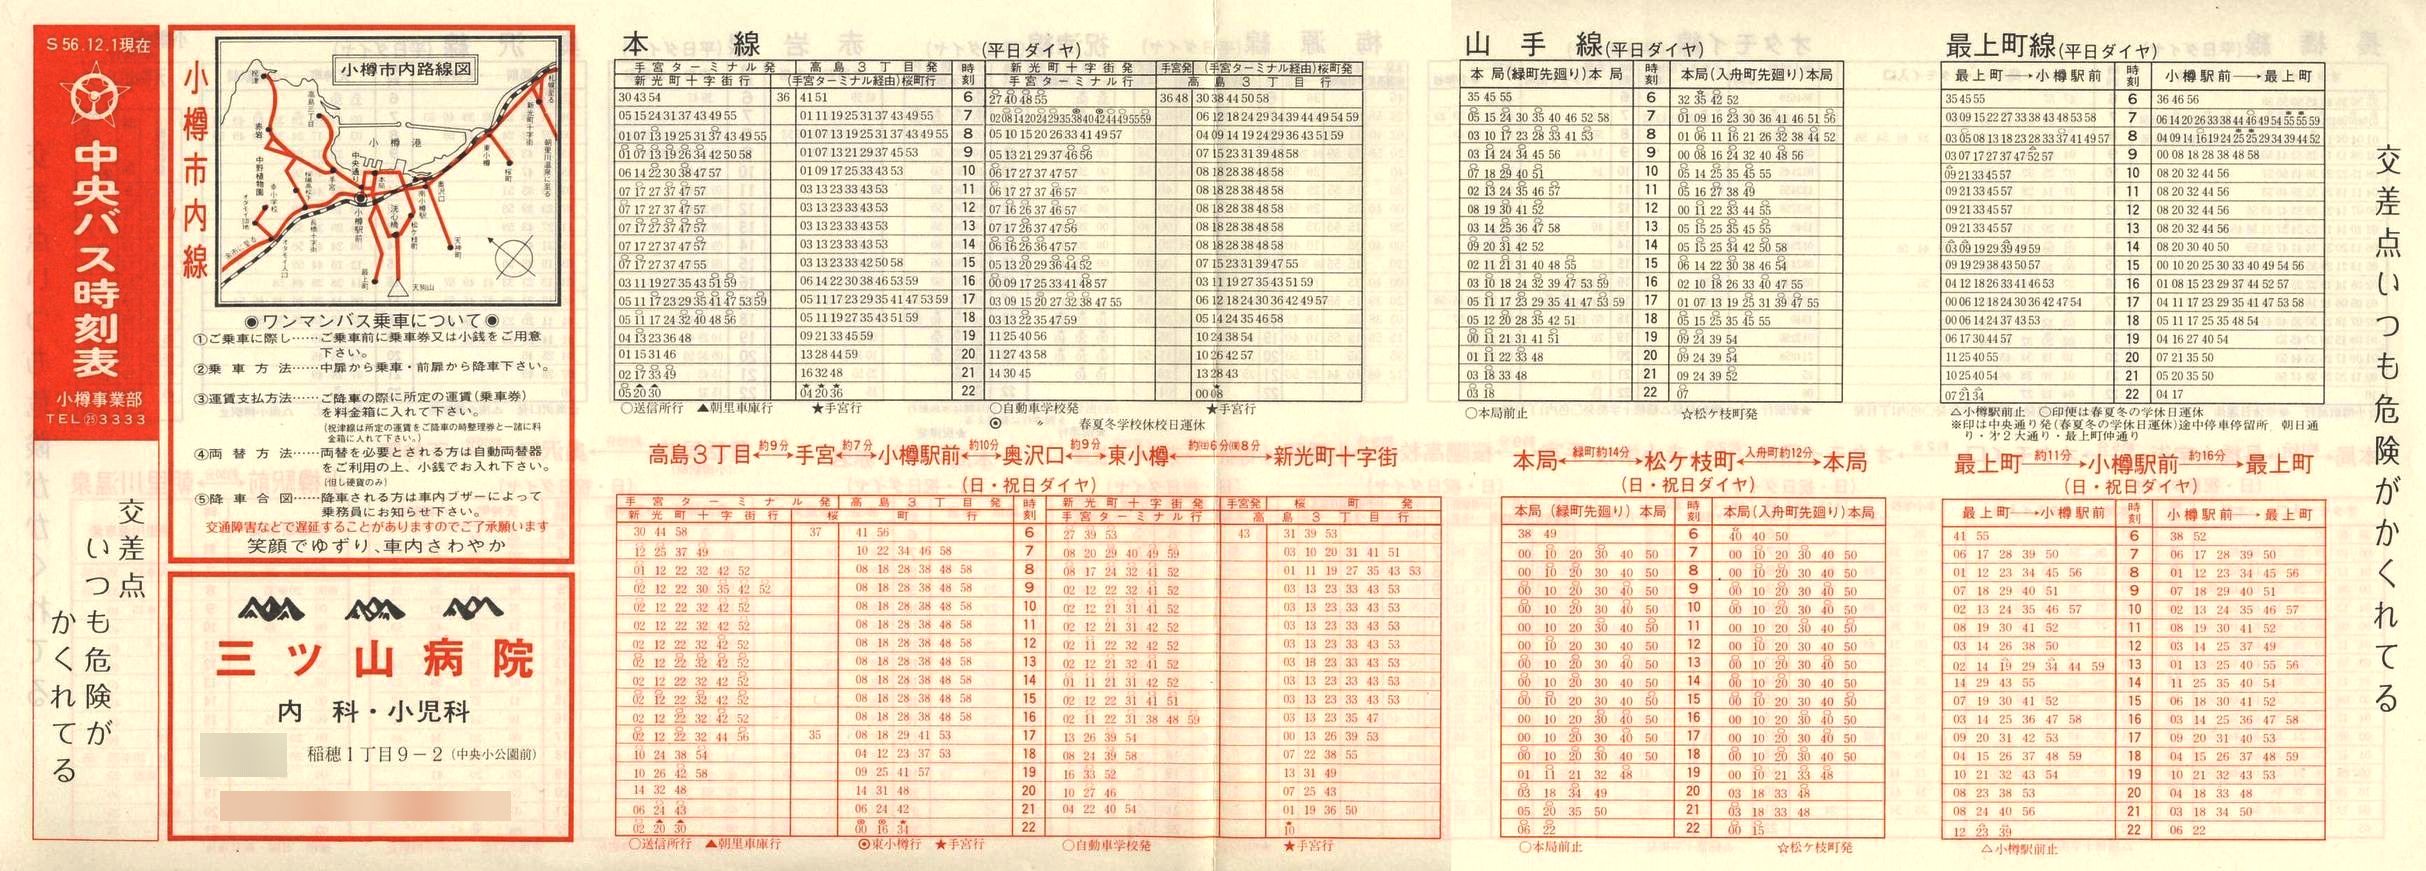 S 56.12.1現在
中央バス時刻表
小樽事業部
TEL㉕3333
交差点
いつも危険が
かくれてる
小樽市内線
小樽市内路線図
祝津
高島三丁目
赤岩
小樽港
中央通り
本局
手宮
中野植物園
幸小学校
小樽駅前
洗心橋
南小樽駅
奥沢口
松ケ枝町
天神町
最上町
天狗山
東小樽
桜町
新光町十字街
オタモイ入口
長橋十字街
◉ワンマンバス乗車について◉
①ご乗車に際し……ご乗車前に乗車券又は小銭をご用意
下さい。
②乗車方法……中扉から乗車・前扉から降車下さい。
③運賃支払方法……ご降車の際に所定の運賃(乗車券)
を料金箱に入れて下さい。
(祝津線は所定の運賃をご降車の時整理券と一緒に料
金箱に入れて下さい。)
④両替方法……両替を必要とされる方は自動両替器
をご利用の上、小銭でお入れ下さい。
(但し硬貨のみ)
⑤降車合図……降車される方は車内ブザーによって
乗務員にお知らせ下さい。
交通障害などで遅延することがありますのでご了承願います
笑顔でゆずり、車内さわやか
三ツ山病院
内科・小児科
稲穂1丁目9－2(中央小公園前)
本線
(平日ダイヤ)
手宮ターミナル発 高島3丁目発 時刻 新光町十字街発 手宮発 (手宮ターミナル経由)桜町発
新光町十字街行 (手宮ターミナル経由)桜町行 手宮ターミナル行 高島3丁目行
30 43 54 36 41 51 6 27 40 48 55 36 48 30 38 44 50 58
05 15 24 31 37 43 49 55 01 11 19 25 31 37 43 49 55 7 06 12 18 24 29 34 39 44 49 54 59
01 07 13 19 25 31 37 43 49 55 01 07 13 19 25 31 37 43 49 55 8 05 10 15 20 26 33 41 49 57 04 09 14 19 24 29 36 43 51 59
01 07 13 19 26 34 42 50 58 01 07 13 21 29 37 45 53 9 05 13 21 29 37 46 56 07 15 23 31 39 48 58
06 14 22 30 38 47 57 01 09 17 25 33 43 53 10 06 17 27 37 47 57 08 18 28 38 48 58
07 17 27 37 47 57 03 13 23 33 43 53 11 06 17 27 37 46 57 08 18 28 38 48 58
07 17 27 37 47 57 03 13 23 33 43 53 12 07 16 26 37 46 57 08 18 28 38 48 58
07 17 27 37 47 57 03 13 23 33 43 53 13 07 17 26 37 47 56 08 18 28 38 48 58
07 17 27 37 47 57 03 13 23 33 43 53 14 06 16 26 36 47 57 08 18 28 38 48 58
07 17 27 37 47 55 03 13 23 33 42 50 58 15 05 13 20 29 36 44 52 07 15 23 31 39 47 55
03 11 19 27 35 43 51 59 06 14 22 30 38 46 53 59 16 00 09 17 25 33 41 48 57 03 11 19 27 35 43 51 59
05 11 17 23 29 35 41 47 53 59 05 11 17 23 29 35 41 47 53 59 17 03 09 15 20 27 32 38 47 55 06 12 18 24 30 36 42 49 57
05 11 17 24 32 40 48 56 05 11 19 27 35 43 51 59 18 03 13 22 35 47 59 05 14 24 35 46 58
04 13 23 36 48 09 21 33 45 59 19 11 25 40 56 10 24 38 54
01 15 31 46 13 28 44 59 20 11 27 43 58 10 26 42 57
02 17 33 49 16 32 48 21 14 30 45 13 28 43
05 20 30 04 20 36 22 00 08
○送信所行 ▲朝里車庫行 ★手宮行 ○自動車学校発 ★手宮行
◉ 〃 春夏冬学校休校日運休
高島3丁目←約9分→手宮←約7分→小樽駅前←約10分→奥沢口←約9分→東小樽←約㊐6分㊊8分→新光町十字街
(日・祝日ダイヤ)
手宮ターミナル発 高島3丁目発 時刻 新光町十字街発 手宮発 桜町発
新光町十字街行 桜町行 手宮ターミナル行 高島3丁目行
30 44 58 37 41 56 6 27 39 53 43 31 39 53
12 25 37 49 10 22 34 46 58 7 08 20 29 40 49 59 03 10 20 31 41 51
01 12 22 32 42 52 08 18 28 38 48 58 8 08 17 24 32 41 52 01 11 19 27 35 43 53
02 12 22 30 35 42 52 08 18 28 38 48 58 9 02 12 22 32 41 52 03 13 23 33 43 53
02 12 22 32 42 52 08 18 28 38 48 58 10 02 12 21 31 41 52 03 13 23 33 43 53
02 12 22 32 42 52 08 18 28 38 48 58 11 02 12 21 31 42 52 03 13 23 33 43 53
02 12 22 32 42 52 08 18 28 38 48 58 12 02 11 22 32 42 52 03 13 23 33 43 53
02 12 22 32 42 52 08 18 28 38 48 58 13 02 12 21 32 41 52 03 13 23 33 43 53
02 12 22 32 42 52 08 18 28 38 48 58 14 01 11 21 31 42 52 03 13 23 33 43 53
02 12 22 32 42 52 08 18 28 38 48 58 15 02 12 22 31 41 51 03 13 23 33 43 53
02 12 22 32 42 52 08 18 28 38 48 58 16 02 11 22 31 38 48 59 03 13 23 35 47
02 12 22 32 44 56 35 08 18 29 41 53 17 13 26 39 54 00 13 26 39 53
10 24 38 54 04 12 23 37 53 18 08 24 39 58 07 22 38 55
10 26 42 58 09 25 41 57 19 16 33 52 13 31 49
14 32 48 14 31 48 20 10 27 46 07 25 43
06 24 43 06 24 42 21 04 22 40 54 01 19 36 50
02 20 30 00 16 34 22 10
○送信所行 ▲朝里車庫行 ◉東小樽行 ★手宮行 ○自動車学校発 ★手宮行
山手線(平日ダイヤ)
本局(緑町先廻り)本局 時刻 本局(入舟町先廻り)本局
35 45 55 6 32 35 42 52
05 15 24 30 35 40 46 52 58 7 01 09 16 23 30 36 41 46 51 56
03 10 17 23 28 33 41 53 8 01 06 11 16 21 26 32 38 44 52
03 14 24 34 45 56 9 00 08 16 24 32 40 48 56
07 18 29 40 51 10 05 14 25 35 45 55
02 13 24 35 46 57 11 05 16 27 38 49
08 19 30 41 52 12 00 11 22 33 44 55
03 14 25 36 47 58 13 05 15 25 35 45 55
09 20 31 42 52 14 05 15 25 34 42 50 58
02 11 21 31 40 48 55 15 06 14 22 30 38 46 54
03 10 18 24 32 39 47 53 59 16 02 10 18 26 33 40 47 55
05 11 17 23 29 35 41 47 53 59 17 01 07 13 19 25 31 39 47 55
05 12 20 28 35 42 51 18 05 15 25 35 45 55
00 11 21 31 41 51 19 09 24 39 54
01 11 22 33 48 20 09 24 39 54
03 18 33 48 21 09 24 39 52
03 18 22 07
○本局前止 ☆松ケ枝町発
本局←緑町約14分→松ケ枝町←入舟町約12分→本局
(日・祝日ダイヤ)
本局(緑町先廻り)本局 時刻 本局(入舟町先廻り)本局
38 49 6 40 40 50
00 10 20 30 40 50 7 00 10 20 30 40 50
00 10 20 30 40 50 8 00 10 20 30 40 50
00 10 20 30 40 50 9 00 10 20 30 40 50
00 10 20 30 40 50 10 00 10 20 30 40 50
00 10 20 30 40 50 11 00 10 20 30 40 50
00 10 20 30 40 50 12 00 10 20 30 40 50
00 10 20 30 40 50 13 00 10 20 30 40 50
00 10 20 30 40 50 14 00 10 20 30 40 50
00 10 20 30 40 50 15 00 10 20 30 40 50
00 10 20 30 40 50 16 00 10 20 30 40 50
00 10 20 30 40 50 17 00 10 20 30 40 50
00 10 20 30 40 50 18 00 10 20 30 40 50
01 11 21 32 48 19 00 10 21 33 48
03 18 34 49 20 03 18 33 48
05 20 35 50 21 03 18 33 48
06 22 22 00 15
○本局前止 ☆松ケ枝町発
最上町線(平日ダイヤ)
最上町→小樽駅前 時刻 小樽駅前→最上町
35 45 55 6 36 46 56
03 09 15 22 27 33 38 43 48 53 58 7 06 14 20 26 33 38 44 46 49 54 55 55 59
03 05 08 13 18 23 28 33 37 41 49 57 8 04 09 14 16 19 24 25 25 29 34 39 44 52
03 07 17 27 37 47 52 57 9 00 08 18 28 38 48 58
09 21 33 45 57 10 08 20 32 44 56
09 21 33 45 57 11 08 20 32 44 56
09 21 33 45 57 12 08 20 32 44 56
09 21 33 45 57 13 08 20 32 44 56
03 09 19 29 39 49 59 14 08 20 30 40 50
09 19 29 38 43 50 57 15 00 10 20 25 30 33 40 49 54 56
04 12 18 26 33 41 46 53 16 01 08 15 23 29 37 44 52 57
00 06 12 18 24 30 36 42 47 54 17 04 11 17 23 29 35 41 47 53 58
00 06 14 24 37 43 53 18 05 11 17 25 35 48 54
06 17 30 44 57 19 04 16 27 40 54
11 25 40 55 20 07 21 35 50
10 25 40 54 21 05 20 35 50
07 21 34 22 04 17
△小樽駅前止 ◎印便は春夏冬の学休日運休
※印は中央通り発(春夏冬の学休日運休)途中停車停留所、朝日通
り・オ2大通り・最上町仲通り
最上町―約11分→小樽駅前―約16分→最上町
(日・祝日ダイヤ)
最上町→小樽駅前 時刻 小樽駅前→最上町
41 55 6 38 52
06 17 28 39 50 7 06 17 28 39 50
01 12 23 34 45 56 8 01 12 23 34 45 56
07 18 29 40 51 9 07 18 29 40 51
02 13 24 35 46 57 10 02 13 24 35 46 57
08 19 30 41 52 11 08 19 30 41 52
03 14 26 38 50 12 03 14 25 37 49
02 14 19 29 34 44 59 13 01 13 25 40 55 56
14 29 43 55 14 11 25 35 40 54
07 19 30 41 52 15 06 18 30 41 52
03 14 25 36 47 58 16 03 14 25 36 47 58
09 20 31 42 53 17 09 20 31 40 53
04 15 26 37 48 59 18 04 15 26 37 48 59
10 21 32 43 54 19 10 21 32 43 53
08 23 38 53 20 04 18 33 48
08 24 40 56 21 03 18 34 50
12 23 39 22 06 22
△小樽駅前止
交差点いつも危険がかくれてる